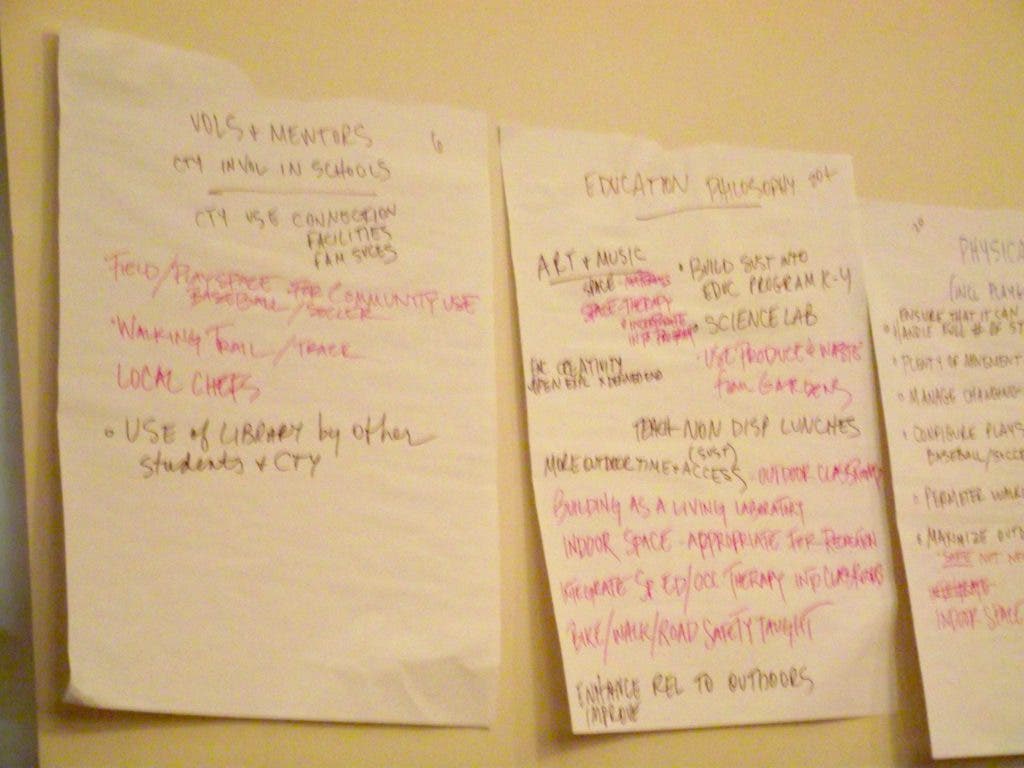 VOLS + MENTORS 6
CTY INVOL IN SCHOOLS
CTY USE CONNECTION
FACILITIES
FAM SVCES
FIELD/PLAYSPACE FOR COMMUNITY USE
BASEBALL/SOCCER
WALKING TRAIL/TRACK
LOCAL CHEFS
USE of LIBRARY by other
students + CTY
EDUCATION PHILOSOPHY
ART + MUSIC
SPACE
SPACE-THERAPY
INTEGRATE
INTO PROGRAM
CREATIVITY
OPEN END
• BUILD SUST INTO
EDUC PROGRAM K-4
• SCIENCE LAB
USE PRODUCE + WASTE
from GARDENS
TEACH NON DISP LUNCHES
(SUST)
MORE OUTDOOR TIME + ACCESS. OUTDOOR CLASSROOMS
BUILDING AS A LIVING LABORATORY
INDOOR SPACE APPROPRIATE FOR RECREATION
INTEGRATE SP ED/OCC THERAPY INTO CLASSROOMS
BIKE/WALK/ROAD SAFETY TAUGHT
ENHANCE REL TO OUTDOORS
IMPROVE
PHYSICA
(INCL PLAYG
ENSURE THAT IT CAN
HANDLE FULL # OF ST
PLENTY OF MOVEMENT
MANAGE CHANGING
CONFIGURE PLAYS
BASEBALL/SOCCE
PERIMETER WALK
MAXIMIZE OUTD
SAFE NOT
INDOOR SPACE